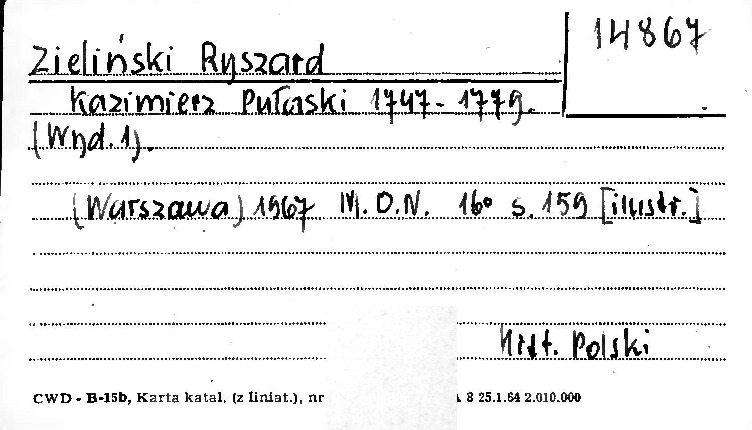 14867
Zieliński Ryszard
Kazimierz Pułaski 1747-1779.
(Wyd. 1).
(Warszawa) 1967 M.O.N. 16° s. 159 [ilustr.]
Hist. Polski
CWD - B-15b, Karta katal. (z liniat.), nr A 8 25.1.64 2.010.000